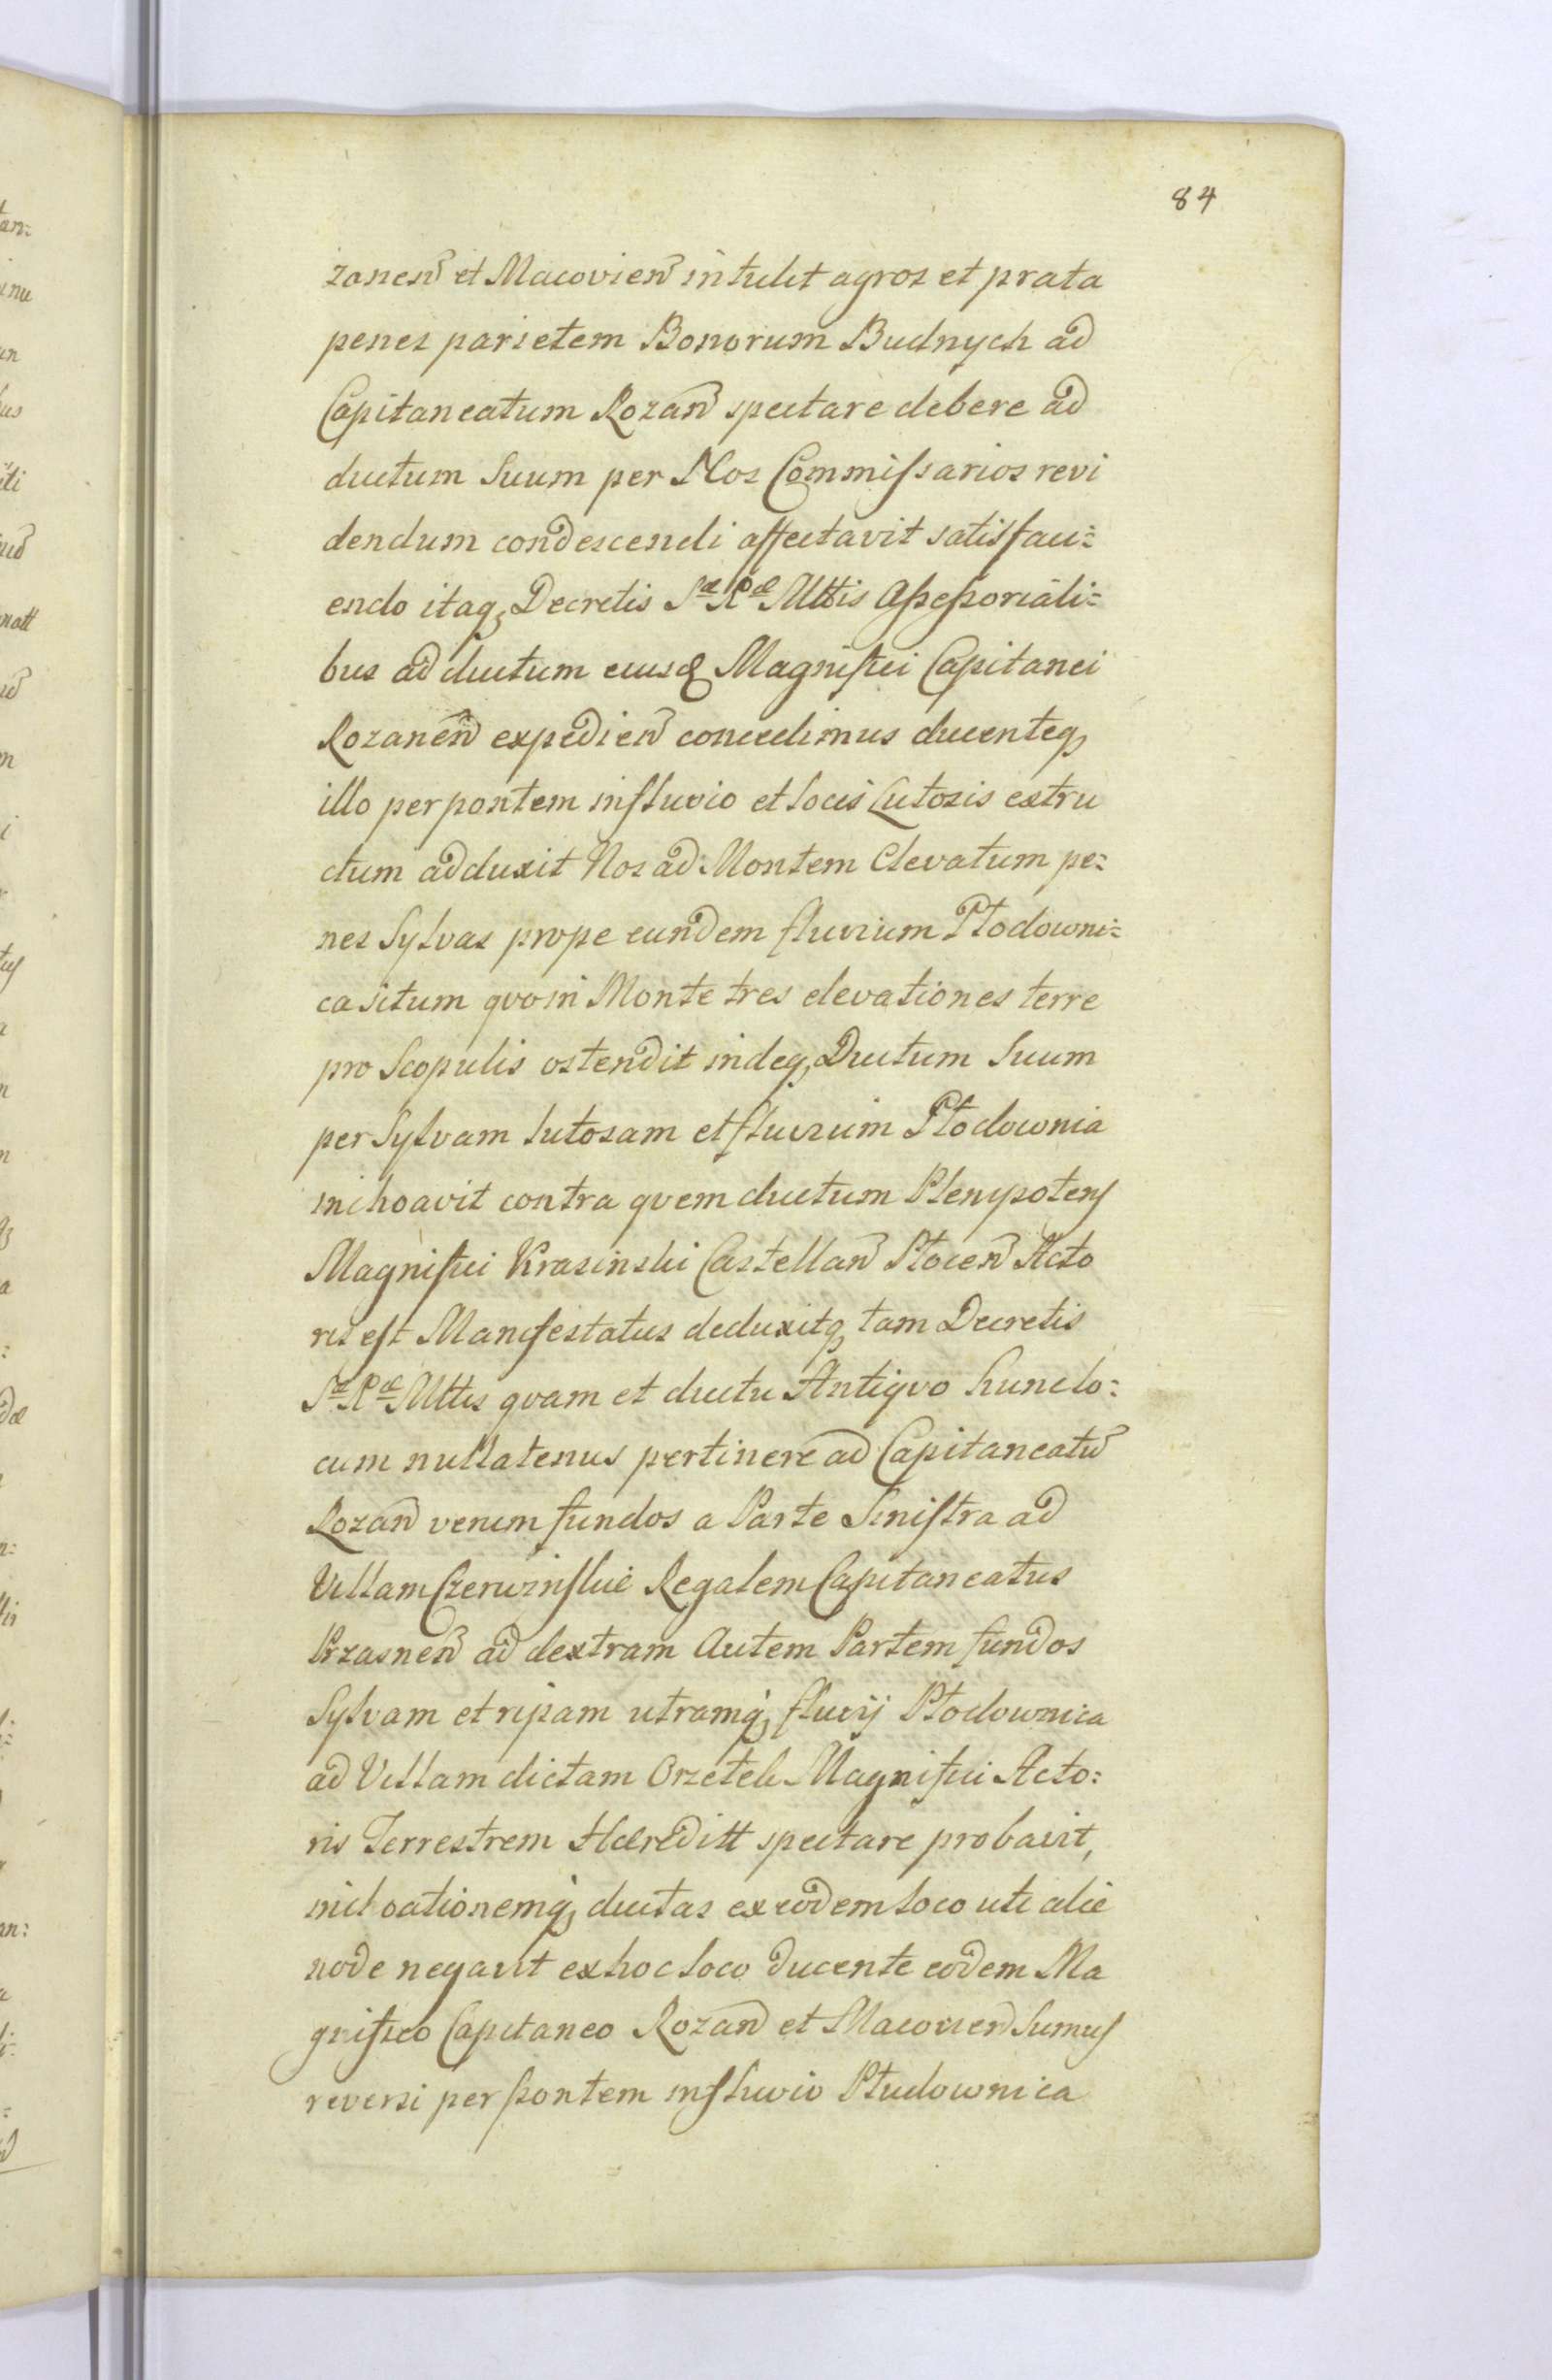 84
zanen̄ et Macovien̄ intulit agros et prata
penes parietem Bonorum Budnych ad
Capitaneatum Rozan̄ spectare debere ad
ductum Suum per Nos Commiſsarios revi
dendum condescendi affectavit satisfaci=
endo itaq, Decretis Sæ Ræ Mttis Aſseſsoriali=
bus ad ductum eiusd Magnifici Capitanei
Rozanen̄ expedien̄ concedimus ducenteq,
illo per pontem in fluvio et locis Lutosis extru
ctum adduxit Nos ad Montem Elevatum pe=
nes Sylvas prope eundem fluvium Płodowni=
ca situm quo in Monte tres elevationes terre
pro Scopulis ostendit indeq, Ductum Suum
per Sylvam lutosam et fluvium Płodownia
inchoavit contra qvem ductum Plenypotenſ
Magnifici Krasinski Castellan̄ Płocen̄ Acto
ris eſt Manifestatus deduxitq, tam Decretis
Sæ Ræ Mttis qvam et ductu Antiqvo hunc lo=
cum nullatenus pertinere ad Capitaneatū
Rozan̄ verum fundos a Parte Siniſtra ad
Villam Czerwinſkie Regalem Capitaneatus
Przasnen̄ ad dextram Autem Partem fundos
Sylvam et ripam utramq, fluvij Płodownica
ad Villam dictam Orzełek Magnifici Acto=
ris Terrestrem Hæreditt spectare probavit,
inchoationemq, ductus ex eodem loco uti alie
node negavit ex hoc loco ducente eodem Ma
gnifico Capitaneo Rozan̄ et Macovien̄ Sumuſ
reversi per pontem in fluvio Płudownica